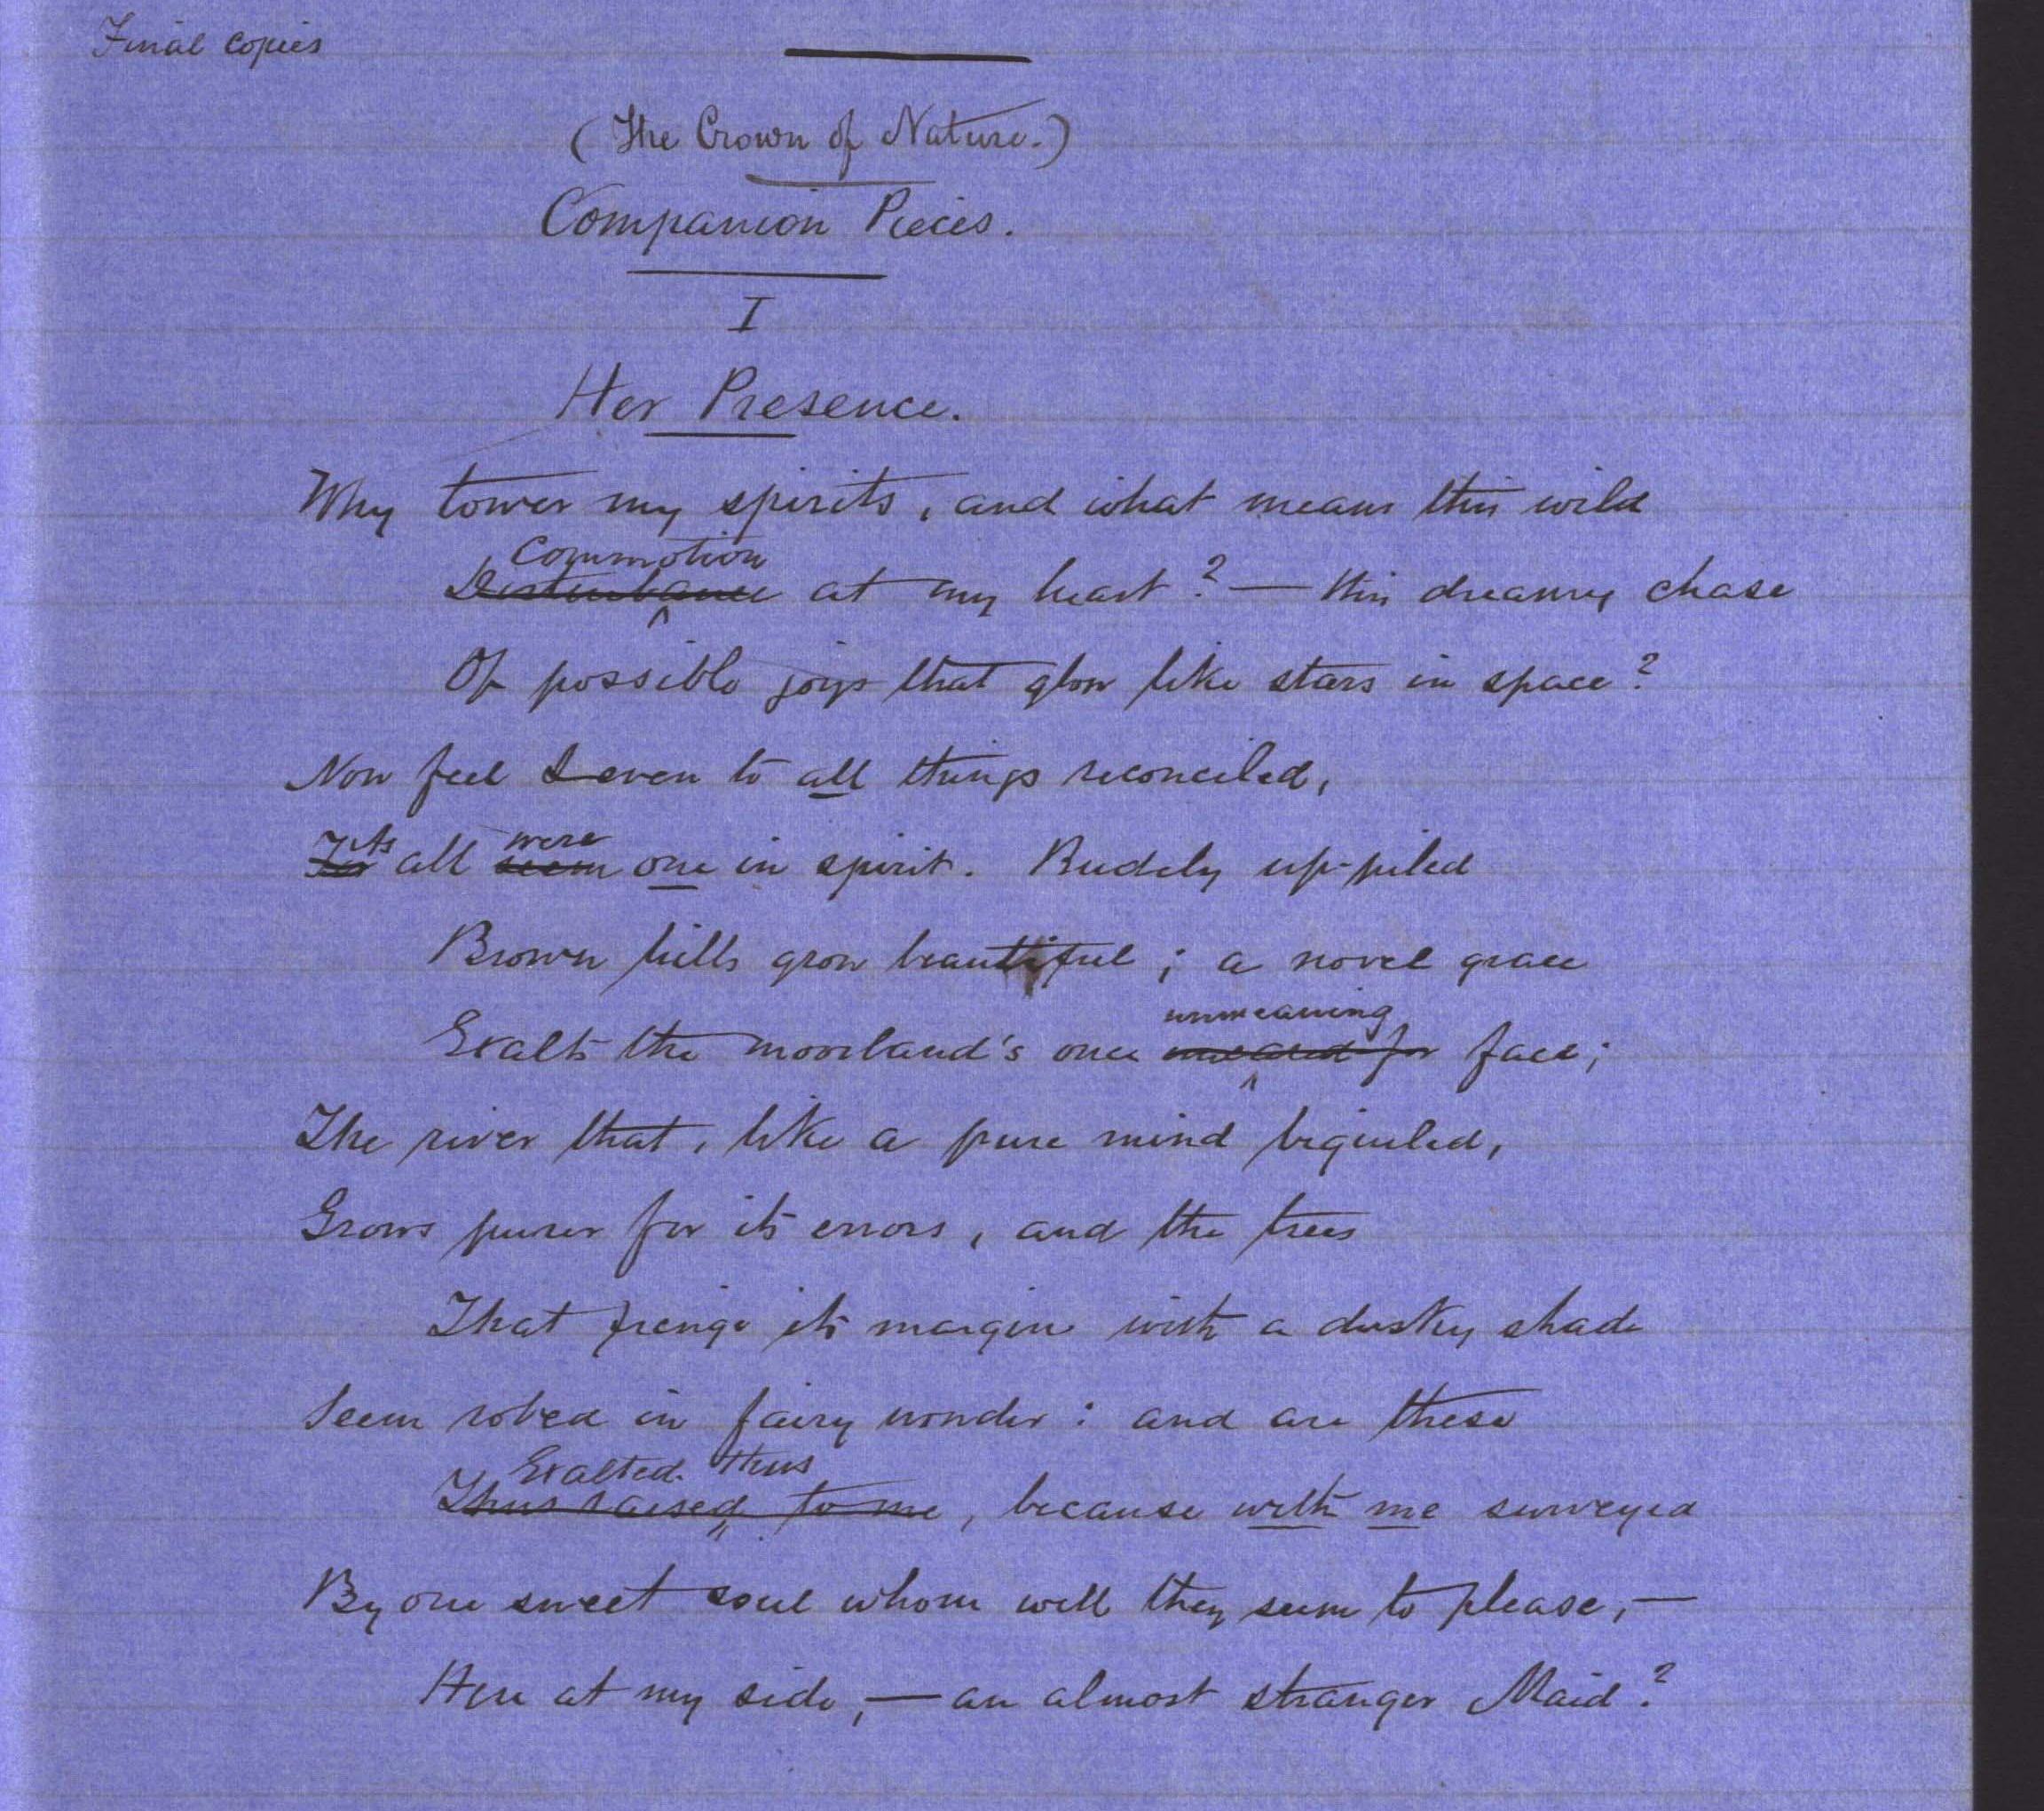 Final copies
(The Crown of Nature.)
Companion Pieces.
I
Her Presence.
Why tower my spirits, and what means this wild
Commotion
Disturbance at my heart? — this dreamy chase
Of possible joys that glow like stars in space?
Now feel I even to all things reconciled,
As all were
seem one in spirit. Rudely up-piled
Brown hills grow beautiful; a novel grace
unmeaning
Exalts the moorland's once uncared for face;
The river that, like a pure mind beguiled,
Grows purer for its errors, and the trees
That fringe its margin with a dusky shade
Seem robed in fairy wonder: and are these
Exalted thus
Thus raised to me, because with me surveyed
By one sweet soul whom well they seem to please,—
Here at my side,— an almost stranger Maid?